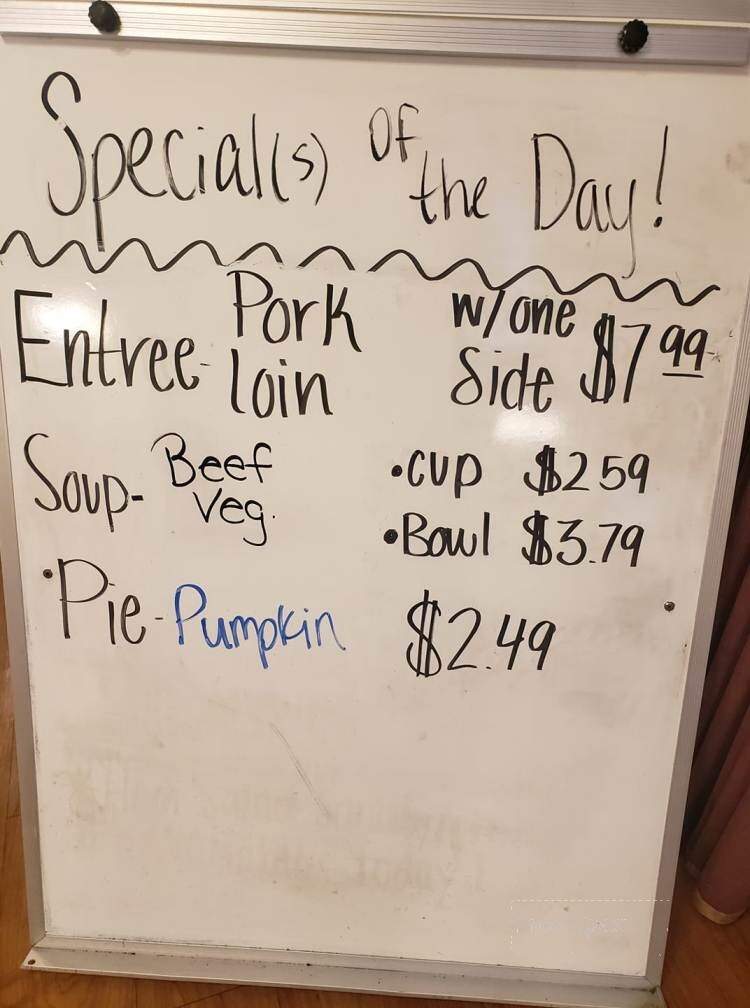 Special(s) of the Day!
Entree- Pork loin w/one Side $7.99
Soup- Beef Veg. •Cup $2.59
•Bowl $3.79
•Pie- Pumpkin $2.49